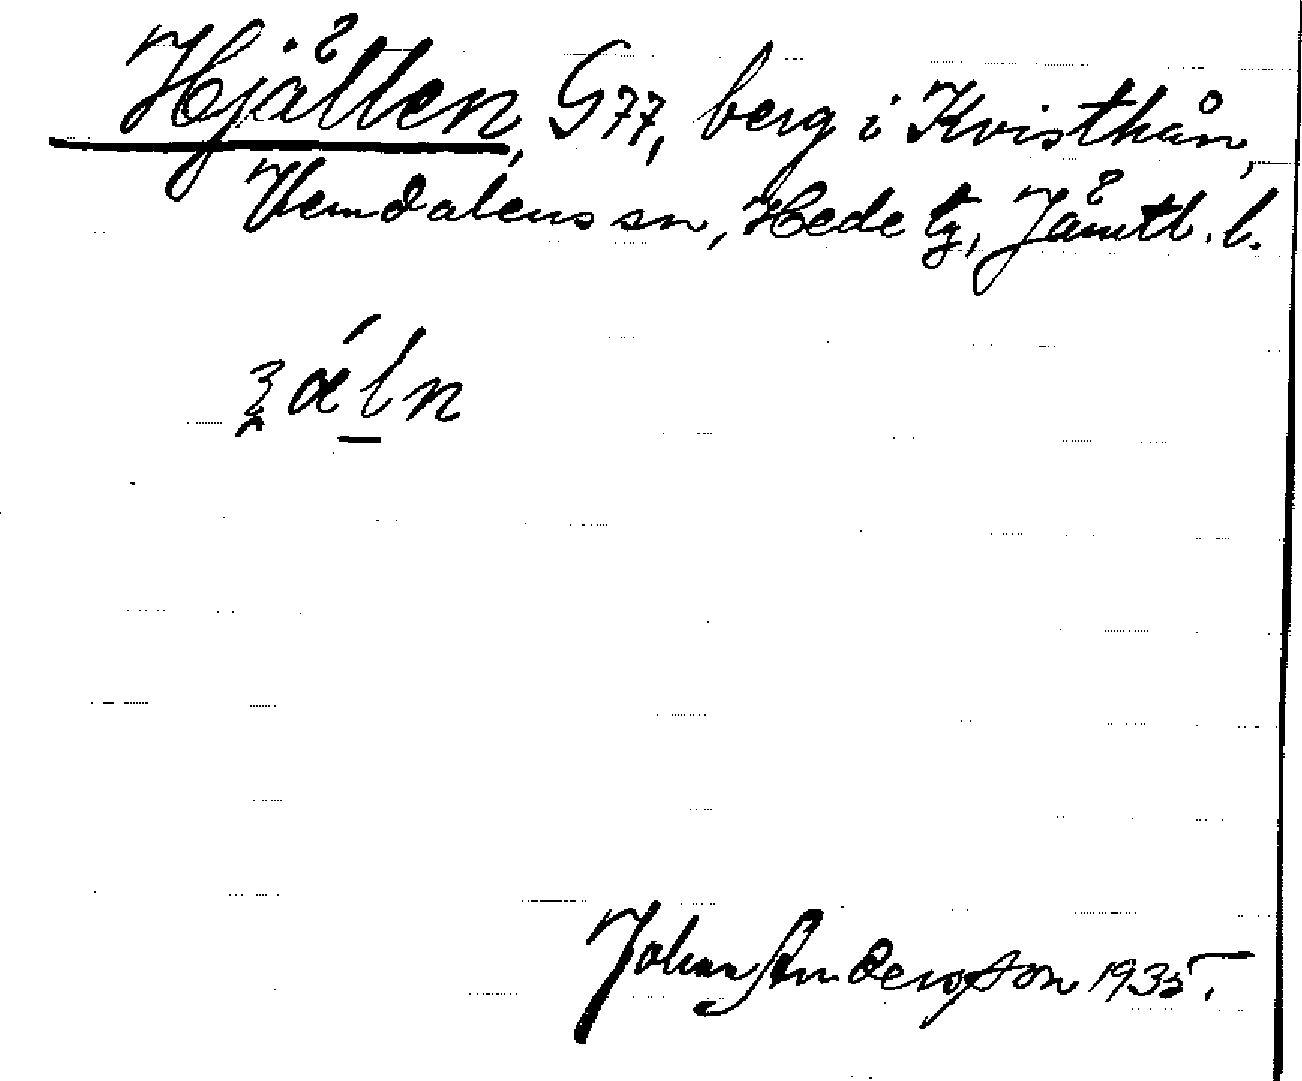 Hjällen, G77, berg i Kvisthån,
Vemdalens sn, Hede tg, Jämtl. l.
Johan Anderson 1935.